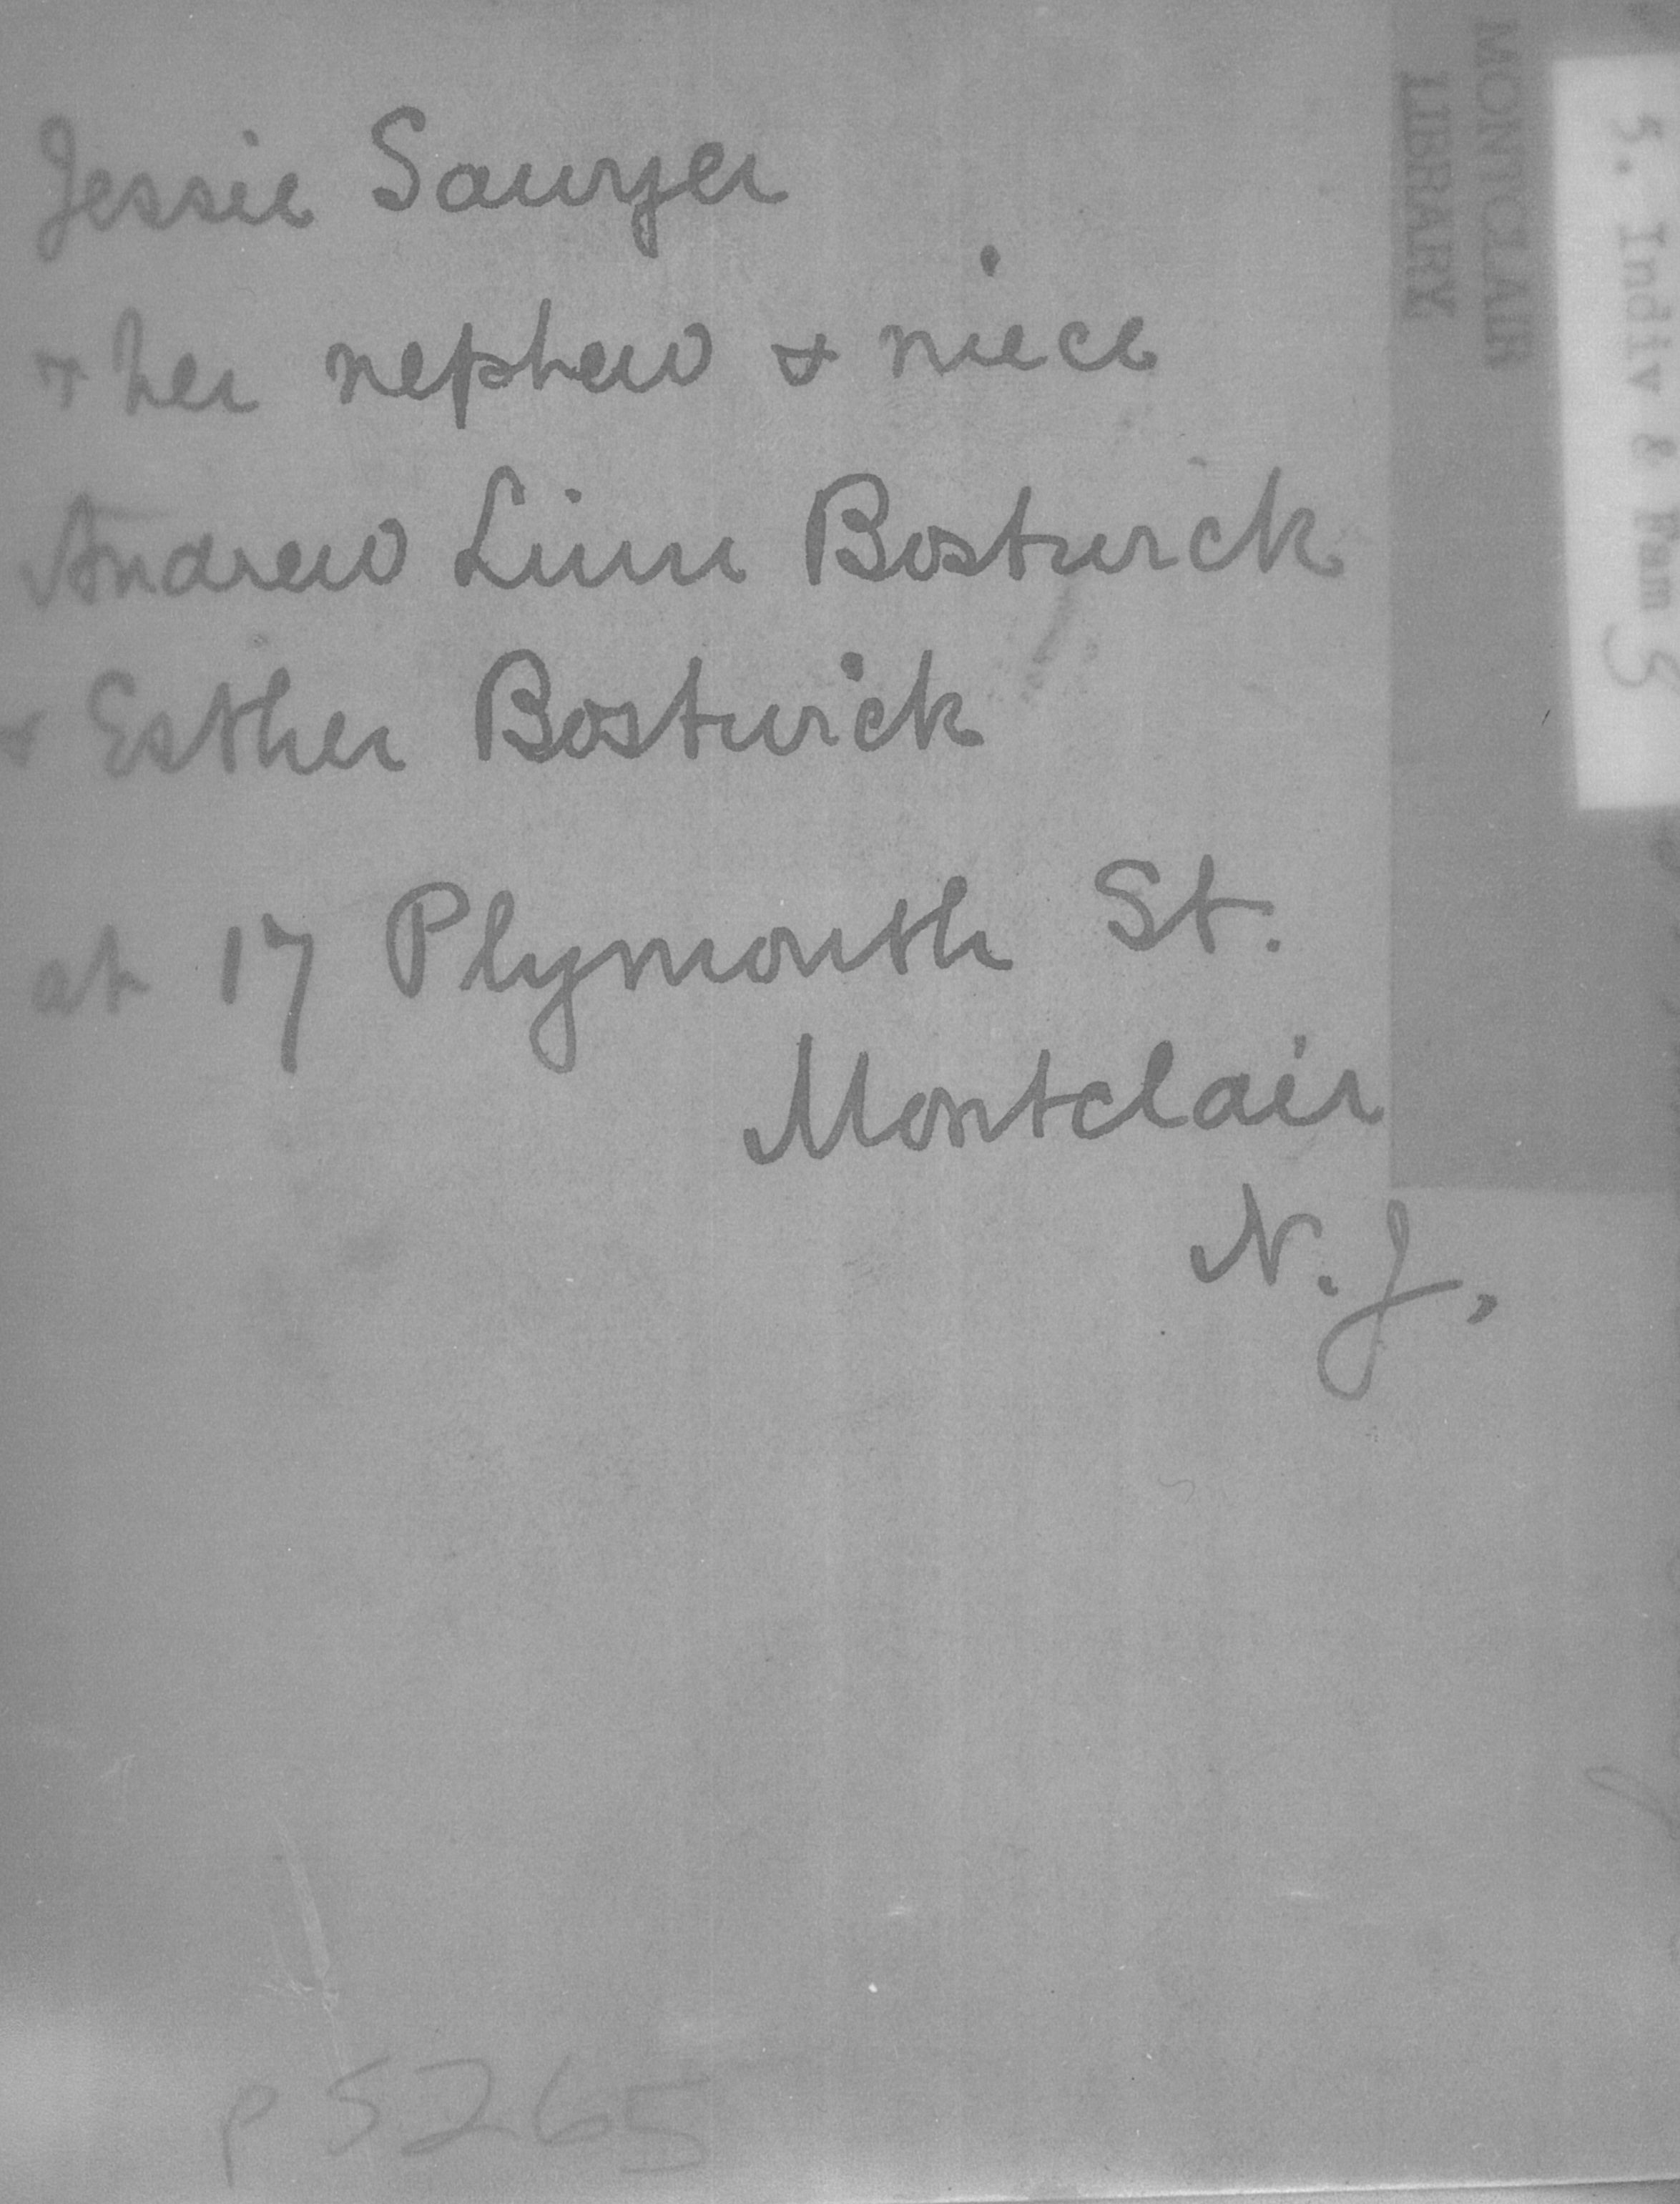 Jessie Sawyer
& her nephew & niece
Andrew Linn Bostwick
& Esther Bostwick
at 17 Plymouth St.
Montclair
N.J.
MONTCLAIR
LIBRARY
5. Indiv & Fam
P5265